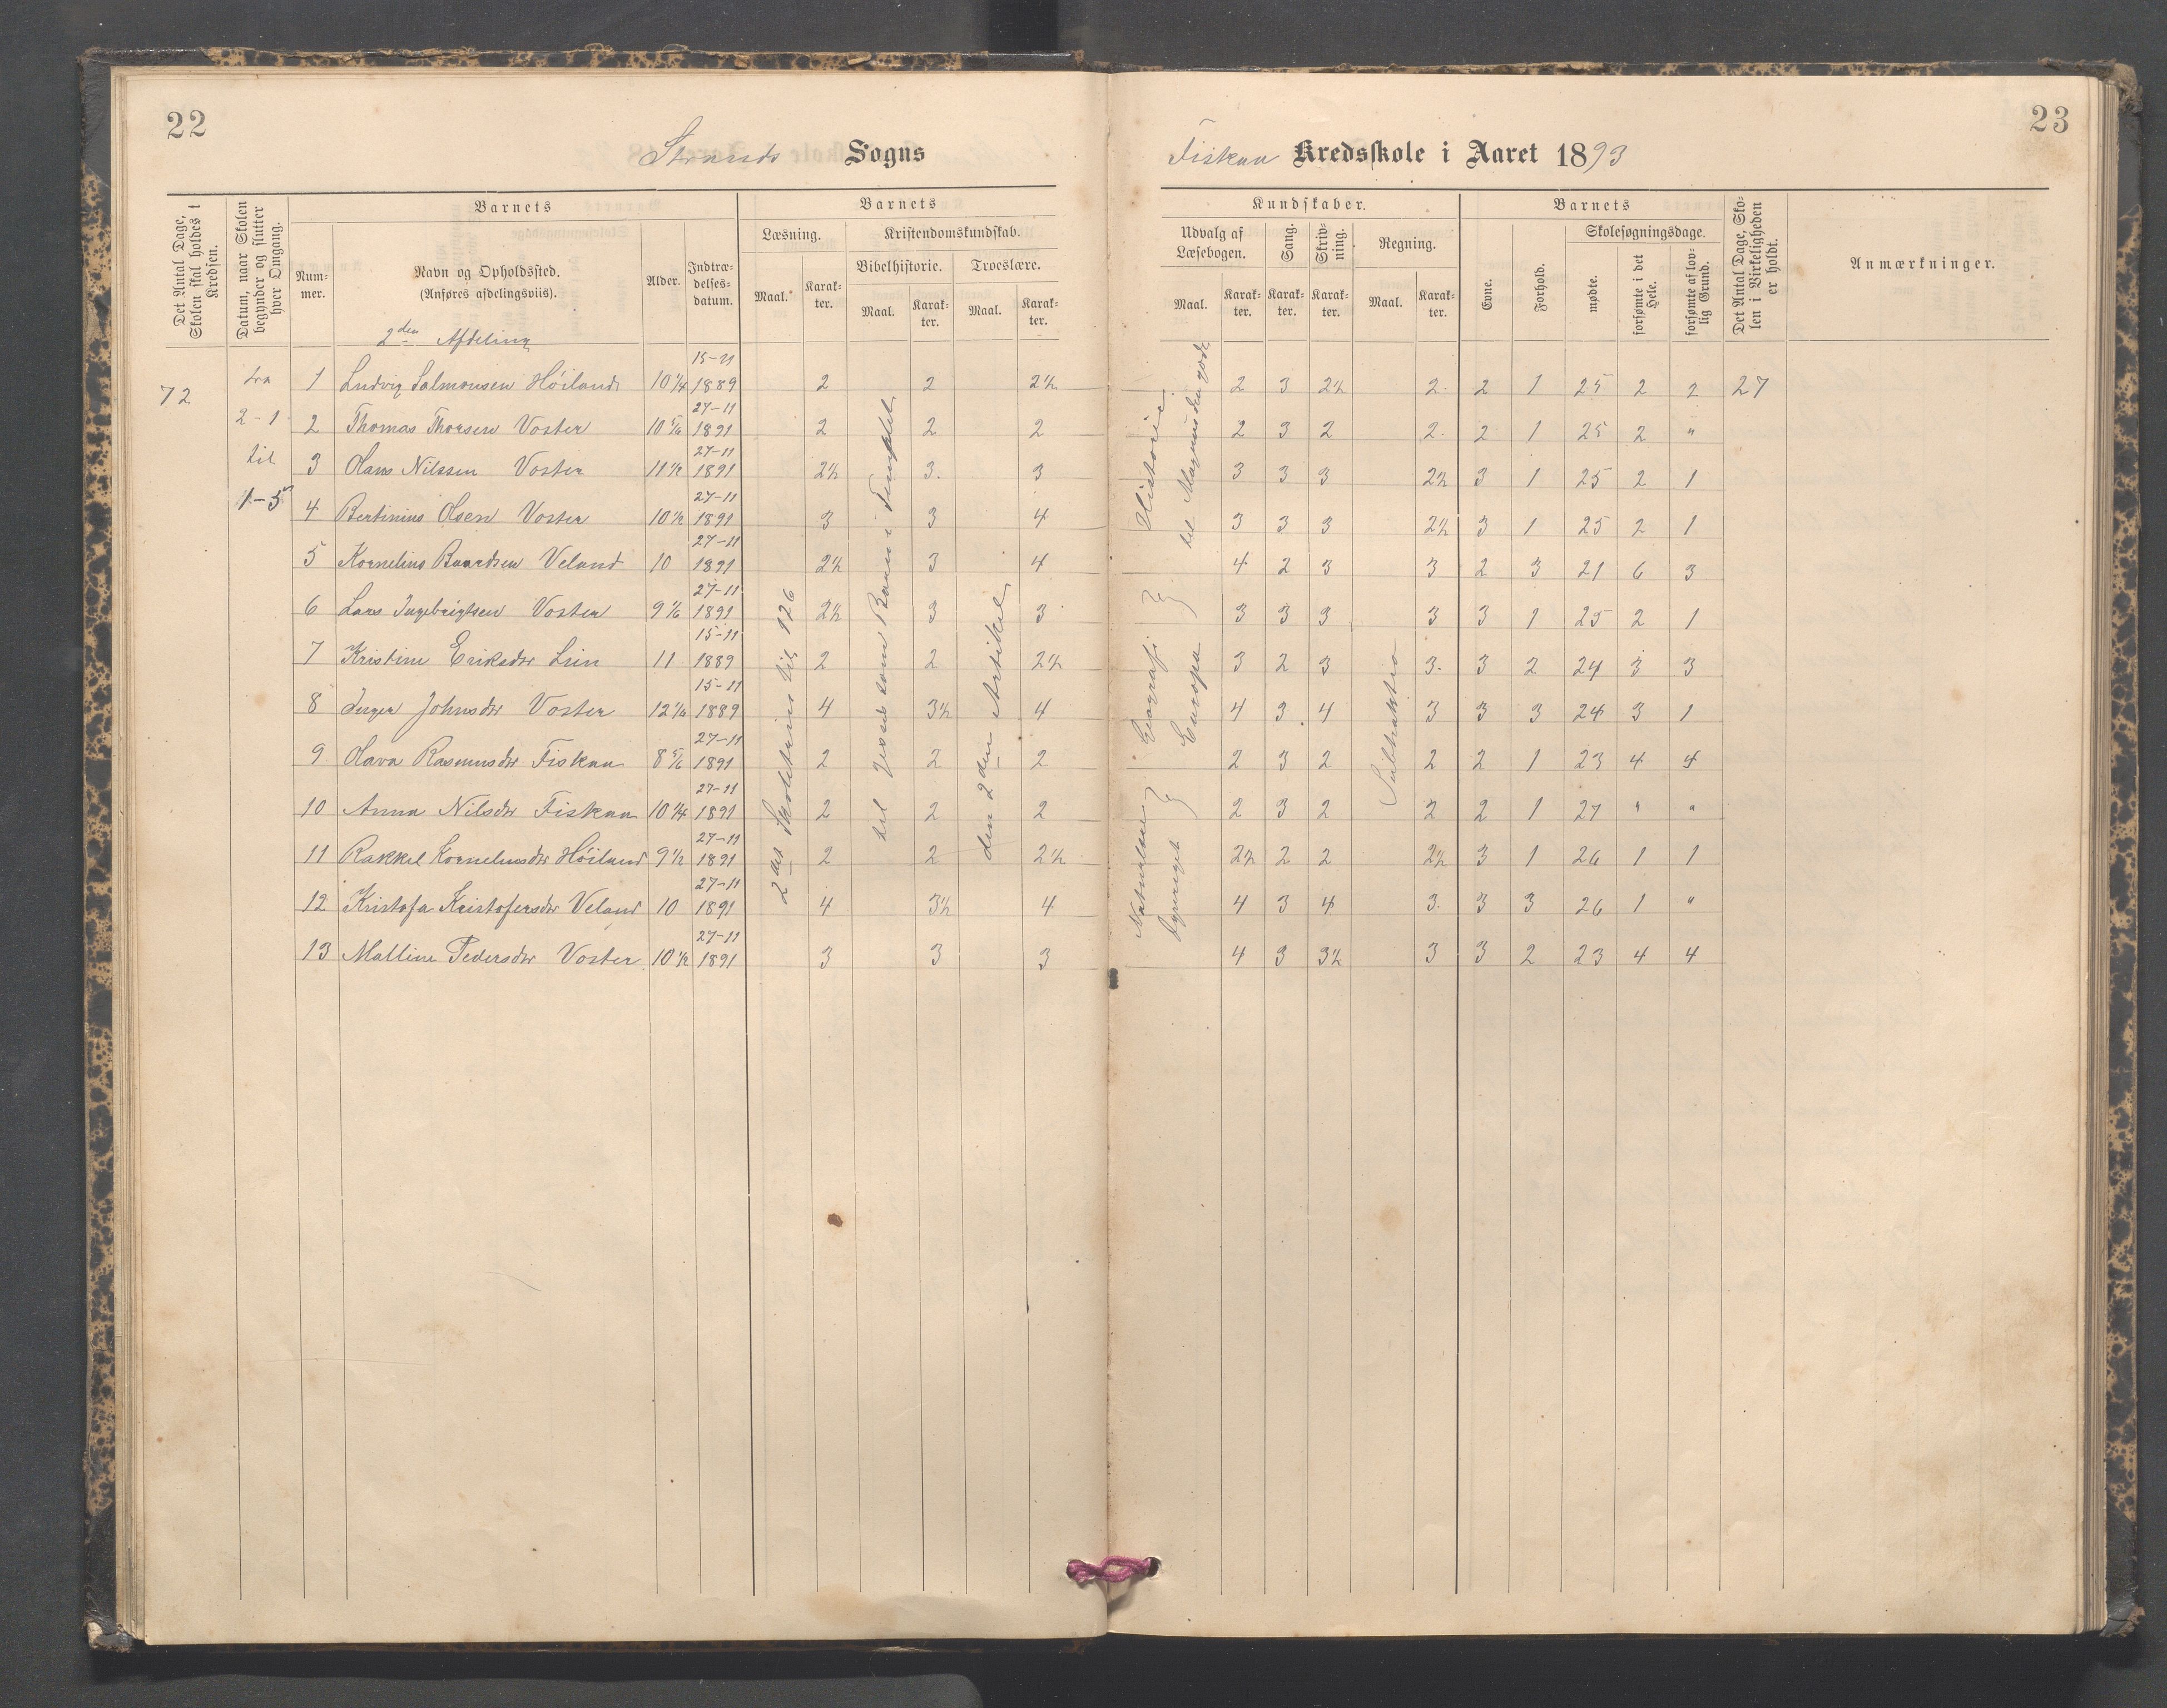 22
Strands Sogns
Det Antal Dage, Skolen skal holdes i Kredsen.
Datum, naar Skolen begynder og slutter hver Omgang.
Barnets
Nummer.
Navn og Opholdssted.
(Anføres afdelingsviis).
Alder.
Indtrædelsesdatum.
Barnets
Læsning.
Maal.
Karakter.
Kristendomskundskab.
Bibelhistorie.
Maal.
Karakter.
Troeslære.
Maal.
Karakter.
2den Afdeling
72
fra
2-1
til
1-5
1 Ludvig Salmonsen Höiland 10 1/4 15-11 1889 2 2 2½
2 Thomas Thorsen Voster 10 5/6 27-11 1891 2 2 2
3 Hans Nilssen Voster 11 1/2 27-11 1891 2½ 3. 3
4 Bertinius Olsen Voster 10 1/2 27-11 1891 3 3 4
5 Kornelius Baardsen Veland 10 27-11 1891 2½ 3 4
6 Lars Ingebrigtsen Voster 9 1/6 27-11 1891 2½ 3 3
7 Kristine Eriksdtr 11 15-11 1889 2 2 2½
8 Inger Johnsdtr Voster 12 1/6 15-11 1889 4 3½ 4
9 Olava Rasmusdtr Fiskaa 8 5/6 27-11 1891 2 2 2
10 Anna Nilsdtr Fiskaa 10 1/4 27-11 1891 2 2 2
11 Rakkel Korneliusdtr Höiland 9 1/2 27-11 1891 2 2 2½
12 Kristofa Kristofersdtr Veland 10 27-11 1891 4 3½ 4
13 Malline Pedersdtr Voster 10 1/2 27-11 1891 3 3 3
2det Skoletrin til 126
til Jesus som Barn i Templet
den 2den Artikel
23
Fiskaa Kredsskole i Aaret 1893
Kundskaber.
Udvalg af Læsebogen.
Maal.
Karakter.
Sang.
Karakter.
Skrivning.
Karakter.
Regning.
Maal.
Karakter.
Barnets
Evne.
Forhold.
Skolesøgningsdage.
mødte.
forsømte i det Hele.
forsømte af lovlig Grund.
Det Antal Dage, Skolen i Virkeligheden er holdt.
Anmærkninger.
2 3 2½ 2. 2 1 25 2 2 27
2 3 2 2. 2 1 25 2 "
3 3 3 2½ 3 1 25 2 1
3 3 3 2½ 3 1 25 2 1
4 2 3 3 2 3 21 6 3
3 3 3 3 3 1 25 2 1
3 2 3 3. 3 2 24 3 3
4 3. 4 3 3 3 24 3 1
2 3 2 2 2 1 23 4 4
2 3 2 2 2 1 27 " "
2½ 2 2 2½ 3 1 26 1 1
4 3 4 3. 3 3 26 1 "
4 3 3½ 3 3 2 23 4 4
Historie:
til Magnus den gode
Geografi
Europa
Naturlære
Dyreriget
Subtraktion